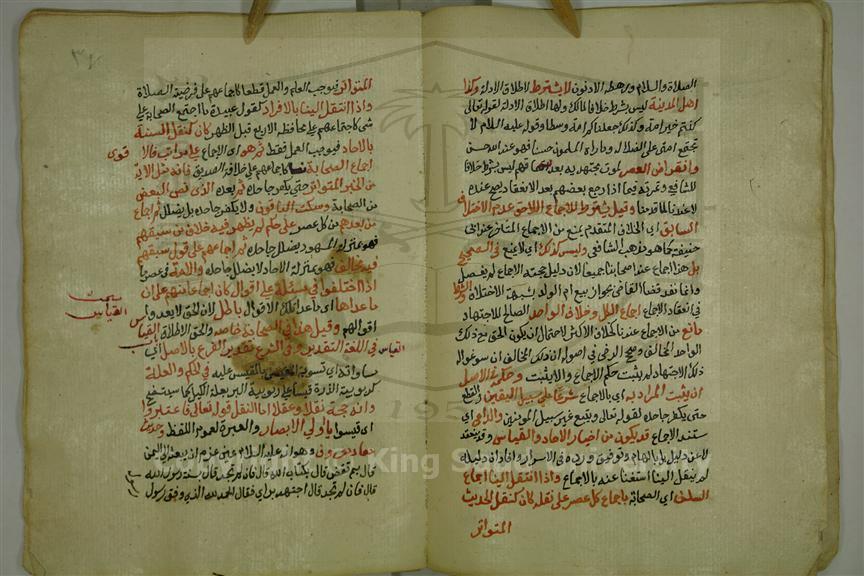 الصلاة والسلام ورهطه الادنون لا يشترط لاطلاق الادلة وكذا
اهل المدينة ليس بشرط خلافا لمالك ولنا اطلاق الادلة لقوله تعالى
كنتم خير امة وكذلك جعلناكم امة وسطا وقوله عليه السلام لا
تجتمع امتي على الضلالة وما راه المسلمون حسنا فهو عند الله حسن
وانقراض العصر لموت مجتهديه بعد اتفاقهم ليس بشرط خلافا
للشافعي وثمرته فيما اذا رجع بعضهم بعد الانعقاد لا يصح عنده
لا عندنا لما قدمنا وقيل يشترط للاجماع اللاحق عدم الاختلاف
السابق اي الخلاف المتقدم يمنع من الاجماع المتاخر عند ابي
حنيفة كما هو مذهب الشافعي وليس كذلك اي لا يمنع في الصحيح
بل هذا اجماع عند اصحابنا جميعا لان دليل حجية الاجماع لم يفصل
وانما نفذ قضا القاضي بجواز بيع ام الولد لشبهة الاختلاف والشرط
في انعقاد الاجماع اجماع الكل وخلاف الواحد الصالح للاجتهاد
مانع من الاجماع عندنا كخلاف الاكثر لاحتمال ان يكون الحق مع ذلك
الواحد المخالف وصحح السرخسي في اصوله ان ذلك المخالف ان سوغوا له
ذلك الاجتهاد لم يثبت حكم الاجماع والا يثبت وحكمه في الاصل
ان يثبت المراد به اي بالاجماع شرعا على سبيل اليقين والقطع
حتى يكفر جاحده لقوله تعالى ويتبع غير سبيل المومنين والداعي اي
مستند الاجماع قد يكون من اخبار الاحاد والقياس وقد ينعقد
لا عن دليل بل بالهام وتوفيق ورده في الاسرار وافاد ان دليله
لم ينقل الينا استغناء عنه بالاجماع واذا انتقل الينا اجماع
السلف اي الصحابة باجماع كل عصر على نقله كان كنقل الحديث
المتواتر
المتواتر فيوجب العلم والعمل قطعا كاجماعهم على فرضية الصلاة
واذا انتقل الينا بالافراد كقول عبيدة ما اجتمع الصحابة على
شي كاجتماعهم على محافظة الاربع قبل الظهر كان كنقل السنة
بالاحاد فيوجب العمل فقط ثم هو اي الاجماع على مراتب فالاقوى
اجماع الصحابة نصا كاجماعهم على خلافة الصديق فانه مثل الاية
من الخبر المتواتر حتى يكفر جاحده ثم بعده الذي نص البعض
من الصحابة وسكت الباقون ولا يكفر جاحده بل يضلل ثم اجماع
من بعدهم من كل عصر على حكم لم يظهر فيه خلاف من سبقهم
فهو بمنزلة المشهور يضلل جاحده ثم اجماعهم على قول سبقهم
فيه مخالف فهو بمنزلة الاحاد لا يضلل جاحده والامة في عصر ما
اذا اختلفوا في مسئلة على اقوال كان اجماعا منهم على ان
ما عداها اي ما عدا تلك الاقوال باطل لان الحق لا يعدوا
اقوالهم وقيل هذا في الصحابة خاصة والحق الاطلاق باب القياس
القياس في اللغة التقدير وفي الشرع تقدير الفرع بالاصل اي
مساواته اي تسوية المقيس بالمقيس عليه في الحكم والعلة
كربوية الذرة قياسا على ربوية البر بعلة الكيل كما سيتضح
وانه حجة نقلا وعقلا اما النقل فقوله تعالى فاعتبروا
اي قيسوا يا اولي الابصار والعبرة لعموم اللفظ وحديث
معاذ معروف وهو انه عليه السلام حين عزم ان يبعثه الى اليمن
قال بم تقض قال بكتاب الله قال فان لم تجد قال بسنة رسول الله
قال فان لم تجد قال اجتهد براي فقال الحمد لله الذي وفق رسول
رسوله
مبحث
القياس
King Saud University
195